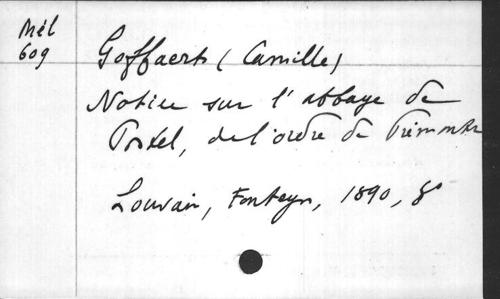 Mél
609
Goffaerts (Camille)
Notice sur l'abbaye de
Postel, de l'ordre de Prémontré
Louvain, Fonteyn, 1890, 8°